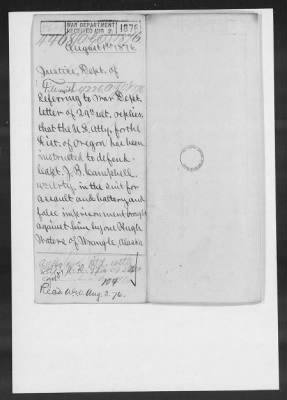 WAR DEPARTMENT
RECEIVED AUG 2
1876
August 1st 1876
Justice, Dept. of
Referring to War Dept.
letter of 29 ult. replies
that the U.S. Atty. for the
Dist. of Oregon has been
instructed to defend
Capt. J. B. Campbell,
4th Arty. in the suit for
assault and battery and
false imprisonment brought
against him by one Hugh
Waters of Wrangle, Alaska
Read A.G.O. Aug. 2. 76.